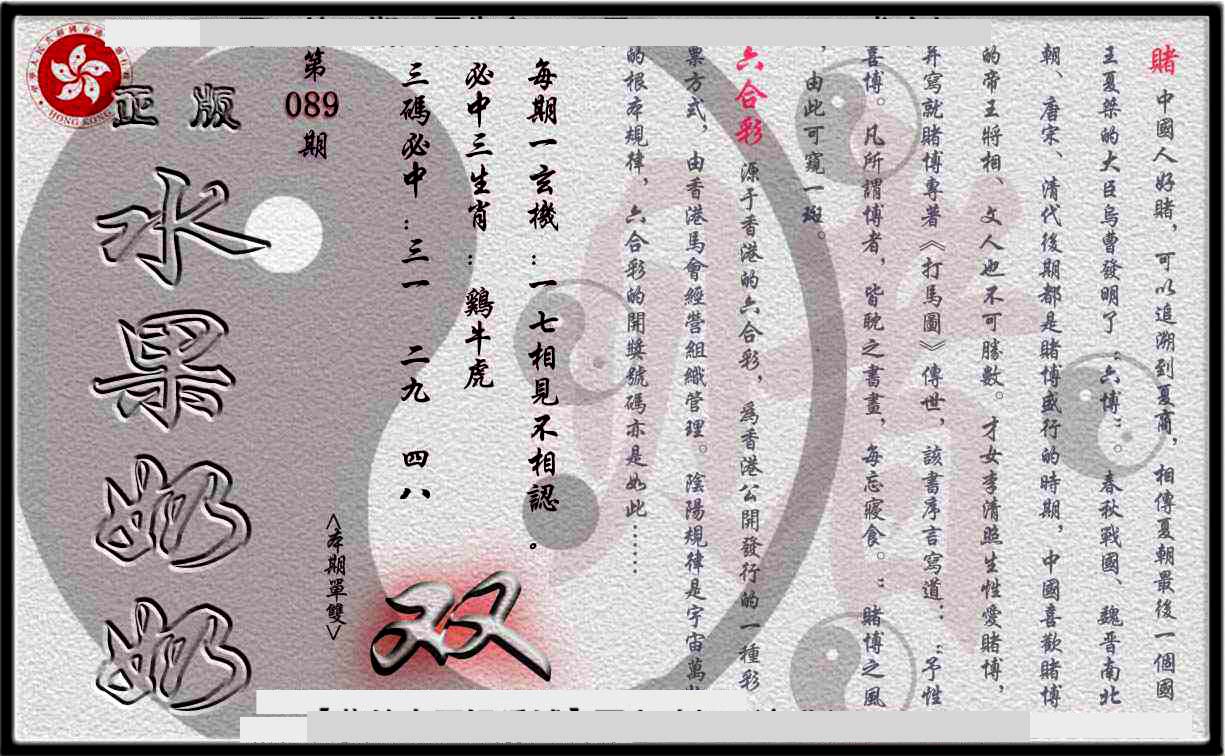 賭 中國人好賭，可以追溯到夏商，相傳夏朝最後一個國
王夏桀的大臣烏曹發明了：六博：。春秋戰國、魏晉南北
朝、唐宋、清代後期都是賭博盛行的時期，中國喜歡賭博
的帝王將相、文人也不可勝數。才女李清照生性愛賭博，
并寫就賭博專著《打馬圖》傳世，該書序言寫道：：予性
喜博。凡所謂博者，皆耽之書畫，每忘寢食。：賭博之風
，由此可窺一斑。
六合彩 源于香港的六合彩，為香港公開發行的一種彩
票方式，由香港馬會經營組織管理。陰陽規律是宇宙萬
的根本規律，六合彩的開獎號碼亦是如此……
每期一玄機：一七相見不相認。
必中三生肖：鷄牛虎
三碼必中：三一 二九 四八
第089期
<本期單雙>
双
正版
水果奶奶
HONG KONG